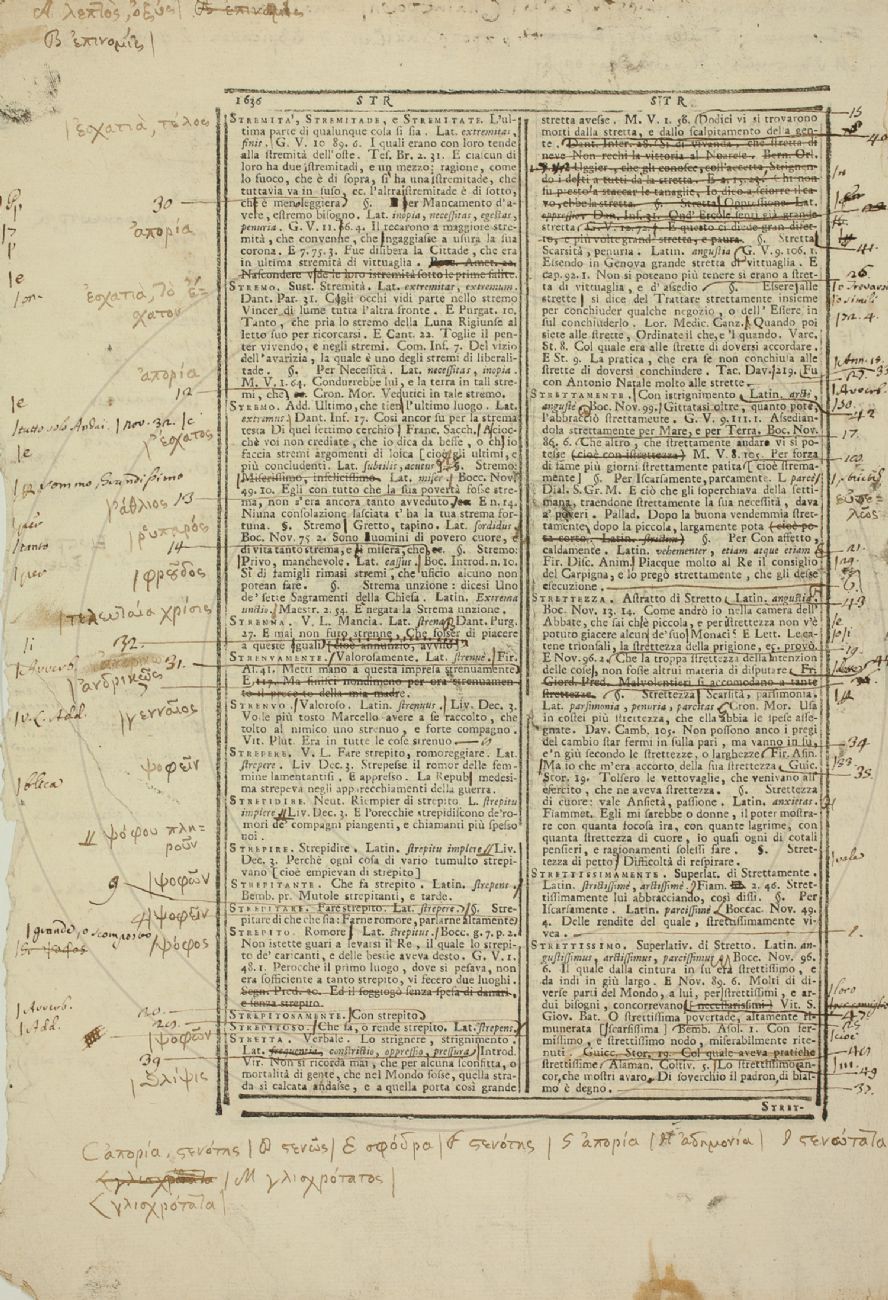 A λεπτὸς, ὀξὺς
B ἐπινομίς
1636 STR STR
ἐσχατιὰ, τέλος
30
ἀπορία
ἀπορία
12
ἔσχατος
ἄθλιος 13
ῥυπαρὸς
14
φροῦδος
τελευταία χρίσις
32.
31.
ἀνδρικῶς
γενναῖος
ψοφεῖν
ψόφου πληροῦν
ψοφῶν
ψοφεῖν
ψόφος
ψοφῶν
39
θλίψις
STREMITA', STREMITADE, e STREMITATE. L'ul-
tima parte di qualunque cosa si sia. Lat. extremitas,
finis. G. V. 10 89. 6. I quali erano con loro tende
alla stremità dell'oste. Tes. Br. 2. 31. E ciascun di
loro ha due stremitadi, e un mezzo; ragione, come
lo fuoco, che è di sopra, si ha una stremitade, che
tuttavia va in suso, ec. l'altra stremitade è di sotto,
ch' è men leggiera §. per Mancamento d'a-
vele, estremo bisogno. Lat. inopia, necessitas, egestas,
penuria. G. V. 11. 6. 4. Il recarono a maggiore stre-
mità, che convenne, che ingaggiasse a usura la sua
corona. E 7. 75. 3. Fue disibera la Cittade, che era
in ultima stremità di vittuaglia.
Nascondere vide le loro istremità sotto le prime falite.
STREMO. Sust. Stremità. Lat. extremitas, extremum.
Dant. Par. 31. Cogli occhi vidi parte nello stremo
Vincer di lume tutta l'altra fronte. E Purgat. 10.
Tanto, che pria lo stremo della Luna Rigiunse al
letto suo per ricorcarsi. E Cant. 22. Toglie il pen-
ter vivendo, e negli stremi. Com. Inf. 7. Del vizio
dell'avarizia, la quale è uno degli stremi di liberali-
tade. §. Per Necessità. Lat. necessitas, inopia.
M. V. 1. 64. Condurrebbe lui, e la terra in tall stre-
mi, che Cron. Mor. Vedutici in tale stremo.
STREMO. Add. Ultimo, che tien l'ultimo luogo. Lat.
extremus Dant. Inf. 17. Così ancor su per la strema
testa Di quel settimo cerchio Franc. Sacch. Accioc-
chè voi non crediate, che io dica da beffe, o ch' io
faccia stremi argomenti di loica cioè gli ultimi, e
più concludenti. Lat. subtilis, acutus §. Stremo:
Miserissimo, infelicissimo. Lat. miser Bocc. Nov.
49. 10. Egli con tutto che la sua povertà fosse stre-
ma, non s'era ancora tanto avveduto. E n. 14.
Niuna consolazion lasciata t' ha la tua strema for-
tuna. §. Stremo Gretto, tapino. Lat. sordidus.
Boc. Nov. 75 2. Sono uomini di povero cuore, e
di vita tanto strema, e sì misera, che ec. §. Stremo:
Privo, manchevole. Lat. cassus Boc. Introd. n. 10.
Sì di famigli rimasi stremi, che uficio alcuno non
potean fare. §. Strema unzione: dicesi Uno
de' sette Sagramenti della Chiesa. Latin. Extrema
unctio. Maestr. 2. 54. È negata la Strema unzione.
STRENNA. V. L. Mancia. Lat. strena Dant. Purg.
27. E mai non furo strenne, Che fosser di piacere
a queste iguali cioè annunzio, avviso
STRENVAMENTE. Valorosamente. Lat. strenuè Fir.
As. 41. Metti mano a questa impresa strenuamente
E 119. Ma finisci nondimeno per ora strenuamen-
to il precetto della mia madre.
STRENVO. Valoroso. Latin. strenuus. Liv. Dec. 3.
Volle più tosto Marcello avere a se raccolto, che
tolto al nimico uno strenuo, e forte compagno.
Vit. Plut. Era in tutte le cose strenuo
STREPERE. V. L. Fare strepito, romoreggiare. Lat.
strepere. Liv Dec. 3. Strepesse il romor delle fem-
mine lamentantisi. E appresso. La Republ medesi-
ma strepeva negli apparecchiamenti della guerra.
STREPIDIRE. Neut. Riempier di strepito. L. strepitu
implere Liv. Dec. 3. E l'orecchie strepidiscono de'ro-
mori de' compagni piangenti, e chiamanti più spesso
noi.
STREPIRE. Strepidire. Latin. strepitu implere Liv.
Dec. 3. Perchè ogni cosa di vario tumulto strepi-
vano [cioè empievan di strepito]
STREPITANTE. Che fa strepito. Latin. strepens.
Bemb. pr. Mutole strepitanti, e tarde.
STREPITARE. Fare strepito. Lat. strepere. §. Stre-
pitare di che che sia: Farne romore, parlarne altamente
STREPITO. Romore Lat. strepitus. Bocc. g. 7. p. 2.
Non istette guari a levarsi il Re, il quale lo strepi-
to de' caricanti, e delle bestie aveva desto. G. V. 1.
48. 1. Perocchè il primo luogo, dove si posava, non
era sofficiente a tanto strepito, vi fecero due luoghi.
Segn. Pred. 10. Ed il soggiogò senza spesa di danari,
e senza strepito.
STREPITOSAMENTE. Con strepito
STREPITOSO. Che fa, o rende strepito. Lat. strepens
STRETTA. Verbale. Lo strignere, strignimento.
Lat. frequentia, constrictio, oppressio, pressura Introd.
Vir. Non si ricorda mai, che per alcuna sconfitta, o
mortalità di gente, che nel Mondo fosse, quella stra-
da sì calcata andasse, e a quella porta così grande
stretta avesse. M. V. 1. 58. Undici vi si trovarono
morti dalla stretta, e dallo scalpitamento della gen-
te. Dant. Inter. 28. Sì di vivanda, che stretta di
neve Non rechi la vittoria al Noarese. Bern. Orl.
Uggier, che gli conosce, coll'accetta Strignen-
do i denti a tutti dà la stretta. E chi non
fu presto a staccar le tanaglie, Io dico a sciorre il ca-
vo, ebbe la stretta. §. Stretta Oppressione. Lat.
oppressio Dan. Inf. 31. Ond' Ercole sentì già grande
stretta G. V. 10. 72. E questo ci diede gran diret-
to, e più volte grand' stretta, e paura. §. Stretta
Scarsità, penuria. Latin. angustia G. V. 9. 106. 1.
Essendo in Genova grande stretta di vittuaglia. E
cap. 92. 1. Non si poteano più tenere sì erano a stret-
ta di vittuaglia, e d'assedio §. Essere alle
strette si dice del Trattare strettamente insieme
per conchiuder qualche negozio, o dell' Essere in
sul conchiuderlo. Lor. Medic. Canz. Quando poi
siete alle strette, Ordinate il che, e 'l quando. Varc.
St. 8. Col quale era alle strette di doversi accordare.
E St. 9. La pratica, che era se non conchiusa alle
strette di doversi conchiudere. Tac. Dav. 219. Fu
con Antonio Natale molto alle strette
STRETTAMENTE. Con istrignimento Latin. arctè,
angustè Boc. Nov. 99. Gittatasi oltre, quanto potè,
l'abbracciò strettamente. G. V. 9. 111. 1. Assedian-
do strettamente per Mare, e per Terra. Boc. Nov.
86. 6. Che altro, che strettamente andare vi si po-
tesse (cioè con istrettezza) M. V. 8. 105. Per forza
di fame più giorni strettamente patita cioè strema-
mente §. Per Iscarsamente, parcamente. L parcè
Dial. S. Gr. M. E ciò che gli soperchiava della setti-
mana, traendone strettamente la sua necessità, dava
a' poveri. Pallad. Dopo la buona vendemmia stret-
tamente, dopo la piccola, largamente pota (cioè po-
ta corto. Latin. strictim) §. Per Con affetto,
caldamente. Latin. vehementer, etiam atque etiam
Fir. Disc. Anim. Piacque molto al Re il consiglio
del Carpigna, e lo pregò strettamente, che gli desse
esecuzione.
STRETTEZZA. Astratto di Stretto Latin. angustia
Boc. Nov. 13. 14. Come andrò io nella camera dell'
Abbate, che sai ch'è piccola, e per istrettezza non v'è
potuto giacere alcun de' suoi Monaci? E Lett. Le ca-
tene trionfali, la strettezza della prigione, ec. provò.
E Nov. 96. 2. Che la troppa strettezza della intenzion
delle cose, non fosse altrui materia di disputare. Fr.
Giord. Pred. Malvolentieri si accomodano a tante
strettezze. §. Strettezza Scarsità, parsimonia.
Lat. parsimonia, penuria, parcitas Cron. Mor. Usa
in costei più strettezza, che ella abbia le spese asse-
gnate. Dav. Camb. 105. Non possono anco i pregi
del cambio star fermi in sulla pari, ma vanno in su,
e'n giù secondo le strettezze, o larghezze Fir. Asin.
Ma io che m'era accorto della sua strettezza Guic.
Stor. 19. Tolsero le vettovaglie, che venivano all'
esercito, che ne aveva strettezza. §. Strettezza
di cuore: vale Ansietà, passione. Latin. anxietas.
Fiammet. Egli mi sarebbe o donne, il poter mostra-
re con quanta focosa ira, con quante lagrime, con
quanta strettezza di cuore, io quasi ogni dì cotali
pensieri, e ragionamenti solessi fare. §. Stret-
tezza di petto Difficoltà di respirare.
STRETTISSIMAMENTE. Superlat. di Strettamente.
Latin. strictissimè, arctissimè Fiam. 2. 46. Stret-
tissimamente lui abbracciando, così dissi. §. Per
Iscarsamente. Latin. parcissimè Boccac. Nov. 49.
4. Delle rendite del quale, strettissimamente vi-
vea
STRETTISSIMO. Superlativ. di Stretto. Latin. an-
gustissimus, arctissimus, parcissimus Bocc. Nov. 96.
6. Il quale dalla cintura in su era strettissimo, e
da indi in giù largo. E Nov. 89. 6. Molti di di-
verse parti del Mondo, a lui, per strettissimi, e ar-
dui bisogni, concorrevano [necessarissimi] Vit. S.
Giov. Bat. O strettissima povertade, altamente ri-
munerata [scarsissima] Bemb. Asol. 1. Con fer-
missimo, e strettissimo nodo, miserabilmente rite-
nuti. Guicc. Stor. 19. Col quale aveva pratiche
strettissime Alaman. Coltiv. 5. Lo strettissimo an-
cor, che mostri avaro, Di soverchio il padron, di bias-
mo è degno.
STRET-
C ἀπορία, στενότης | D στενῶς | E σφόδρα | F στενότης | G ἀπορία | H ἀδημονία | I στενώτατα
M γλισχρότατος
L γλισχρότατα